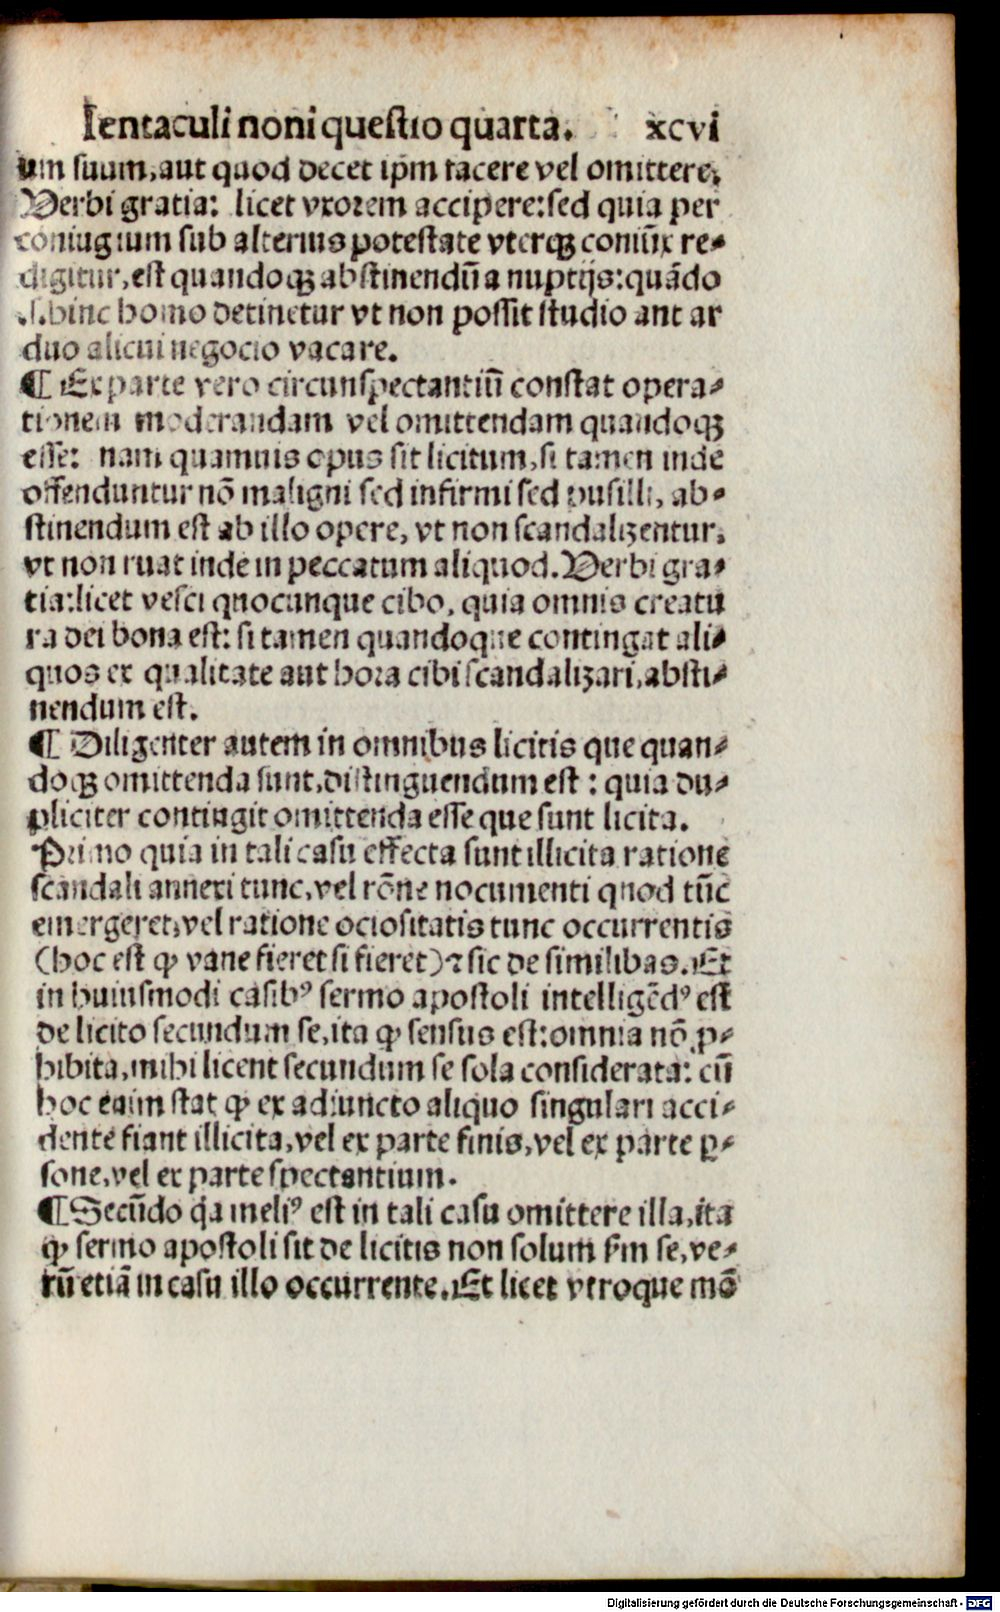 Ientaculi noni questio quarta. xcvi
um suum, aut quod decet ipm tacere vel omittere.
Verbi gratia: licet vxorem accipere: sed quia per
coniugium sub alterius potestate vterqꝫ coniũx re⸗
digitur, est quandoqꝫ abstinendũ a nuptijs: quãdo
.s. hinc homo detinetur vt non possit studio aut ar
duo alicui negocio vacare.
¶ Ex parte vero circunspectantiũ constat opera⸗
tionem moderandam vel omittendam quandoqꝫ
esse: nam quamuis opus sit licitum, si tamen inde
offenduntur nõ maligni sed infirmi sed pusilli, ab⸗
stinendum est ab illo opere, vt non scandalizentur,
vt non ruat inde in peccatum aliquod. Verbi gra⸗
tia: licet vesci quocunque cibo, quia omnis creatu
ra dei bona est: si tamen quandoque contingat ali⸗
quos ex qualitate aut hora cibi scandalizari, absti⸗
nendum est.
¶ Diligenter autem in omnibus licitis que quan⸗
doqꝫ omittenda sunt, distinguendum est : quia du⸗
pliciter contingit omittenda esse que sunt licita.
Primo quia in tali casu effecta sunt illicita ratione
scandali annexi tunc, vel rõne nocumenti quod tũc
emergeret, vel ratione ociositatis tunc occurrentis
(hoc est ꝙ vane fieret si fieret) ⁊ sic de similibus. Et
in huiusmodi casibꝰ sermo apostoli intelligẽdꝰ est
de licito secundum se, ita ꝙ sensus est: omnia nõ ꝓ⸗
hibita, mihi licent secundum se sola considerata: cũ
hoc enim stat ꝙ ex adiuncto aliquo singulari acci⸗
dente fiant illicita, vel ex parte finis, vel ex parte ꝑ⸗
sone, vel ex parte spectantium.
¶ Secũdo q̇a meliꝰ est in tali casu omittere illa, ita
ꝙ sermo apostoli sit de licitis non solum ẜm se, ve⸗
rũ etiã in casu illo occurrente. Et licet vtroque mõ
Digitalisierung gefördert durch die Deutsche Forschungsgemeinschaft - DFG